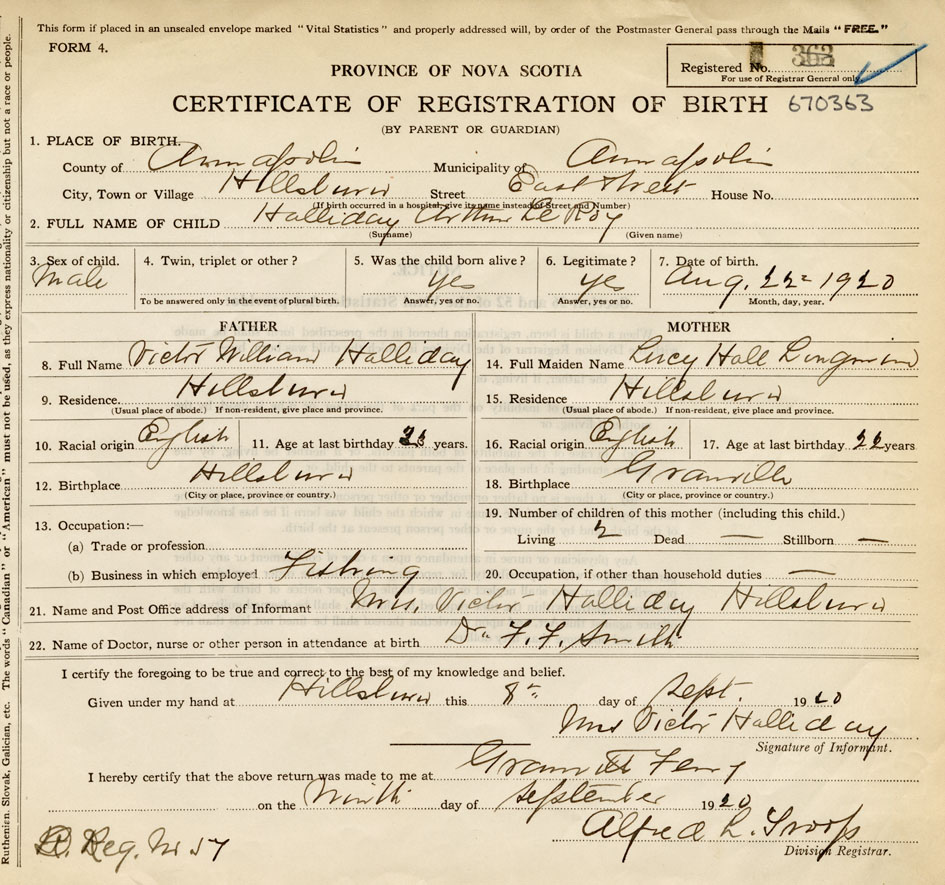 This form if placed in an unsealed envelope marked "Vital Statistics" and properly addressed will, by order of the Postmaster General pass through the Mails "FREE."
FORM 4.
Registered No. 362
For use of Registrar General only
PROVINCE OF NOVA SCOTIA
CERTIFICATE OF REGISTRATION OF BIRTH 670363
(BY PARENT OR GUARDIAN)
1. PLACE OF BIRTH.
County of Annapolis Municipality of Annapolis
City, Town or Village Hillsburn Street East Street House No.
(If birth occurred in a hospital, give its name instead of Street and Number)
2. FULL NAME OF CHILD Halliday Arthur Le Roy
(Surname) (Given name)
3. Sex of child. 4. Twin, triplet or other? 5. Was the child born alive? 6. Legitimate? 7. Date of birth.
Male yes yes Aug. 22nd 1920
To be answered only in the event of plural birth. Answer, yes or no. Answer, yes or no. Month, day, year.
FATHER MOTHER
8. Full Name Victor William Halliday 14. Full Maiden Name Lucy Hall Longmire
9. Residence. Hillsburn 15. Residence Hillsburn
(Usual place of abode.) If non-resident, give place and province. (Usual place of abode.) If non-resident, give place and province.
10. Racial origin English 11. Age at last birthday years. 16. Racial origin English 17. Age at last birthday years
12. Birthplace Hillsburn 18. Birthplace Granville
(City or place, province or country.) (City or place, province or country.)
13. Occupation:— 19. Number of children of this mother (including this child.)
(a) Trade or profession Living 2 Dead — Stillborn —
(b) Business in which employed Fishing 20. Occupation, if other than household duties —
21. Name and Post Office address of Informant Mrs. Victor Halliday Hillsburn
22. Name of Doctor, nurse or other person in attendance at birth Dr. F. F. Smith
I certify the foregoing to be true and correct to the best of my knowledge and belief.
Given under my hand at Hillsburn this 8th day of Sept. 1920
Mrs Victor Halliday
Signature of Informant.
I hereby certify that the above return was made to me at Granville Ferry
on the Ninth day of September 1920
Alfred L. Troop
Division Registrar.
Reg. No 57
Ruthenian, Slovak, Galician, etc. The words "Canadian" or "American" must not be used, as they express nationality or citizenship but not a race or people.